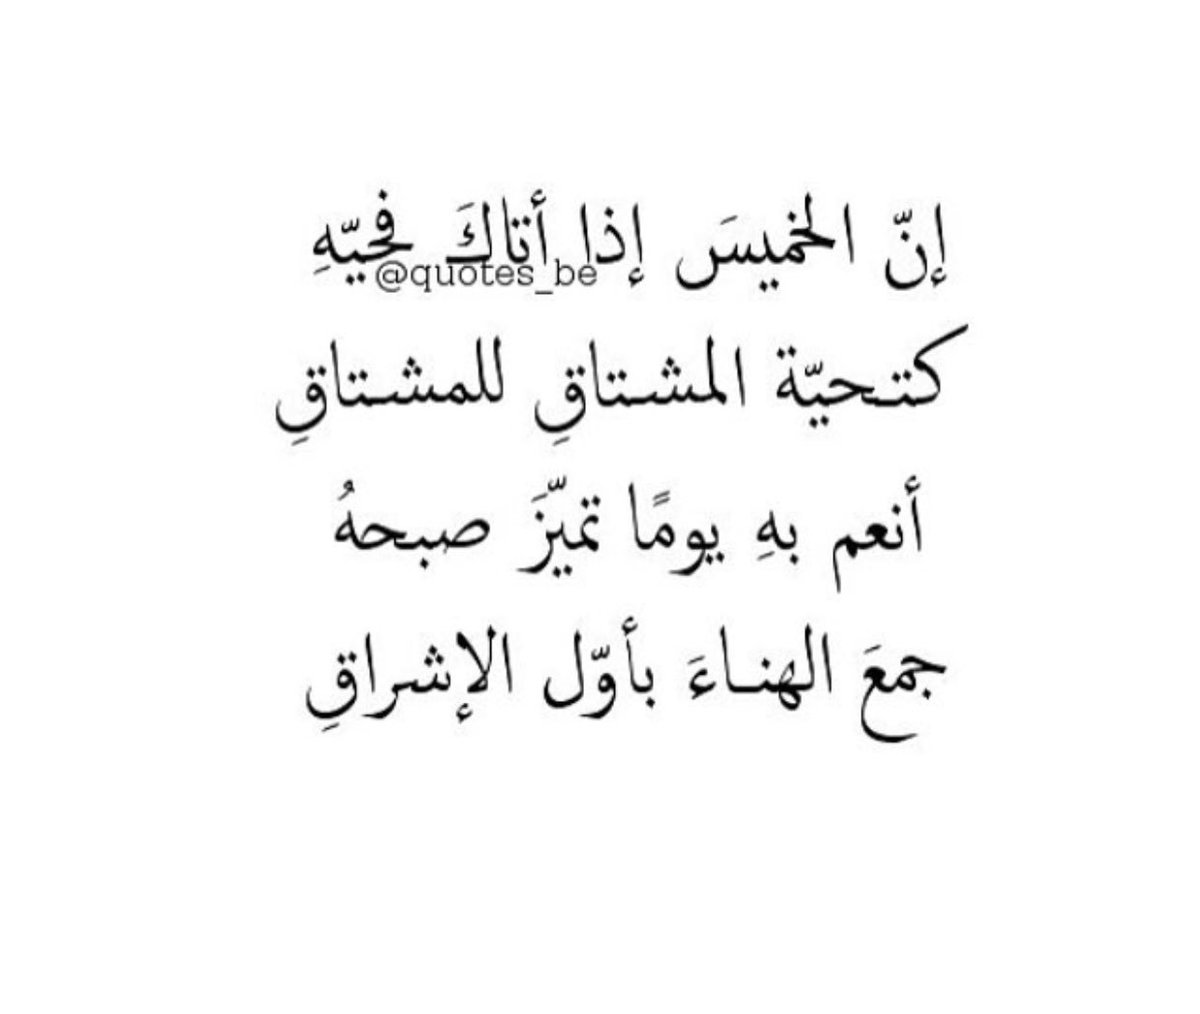 إنّ الخميسَ إذا أتاكَ فحيّهِ
@quotes_be
كتحيّة المشتاقِ للمشتاقِ
أنعم بهِ يومًا تميّزَ صبحهُ
جمعَ الهناءَ بأوّل الإشراقِ